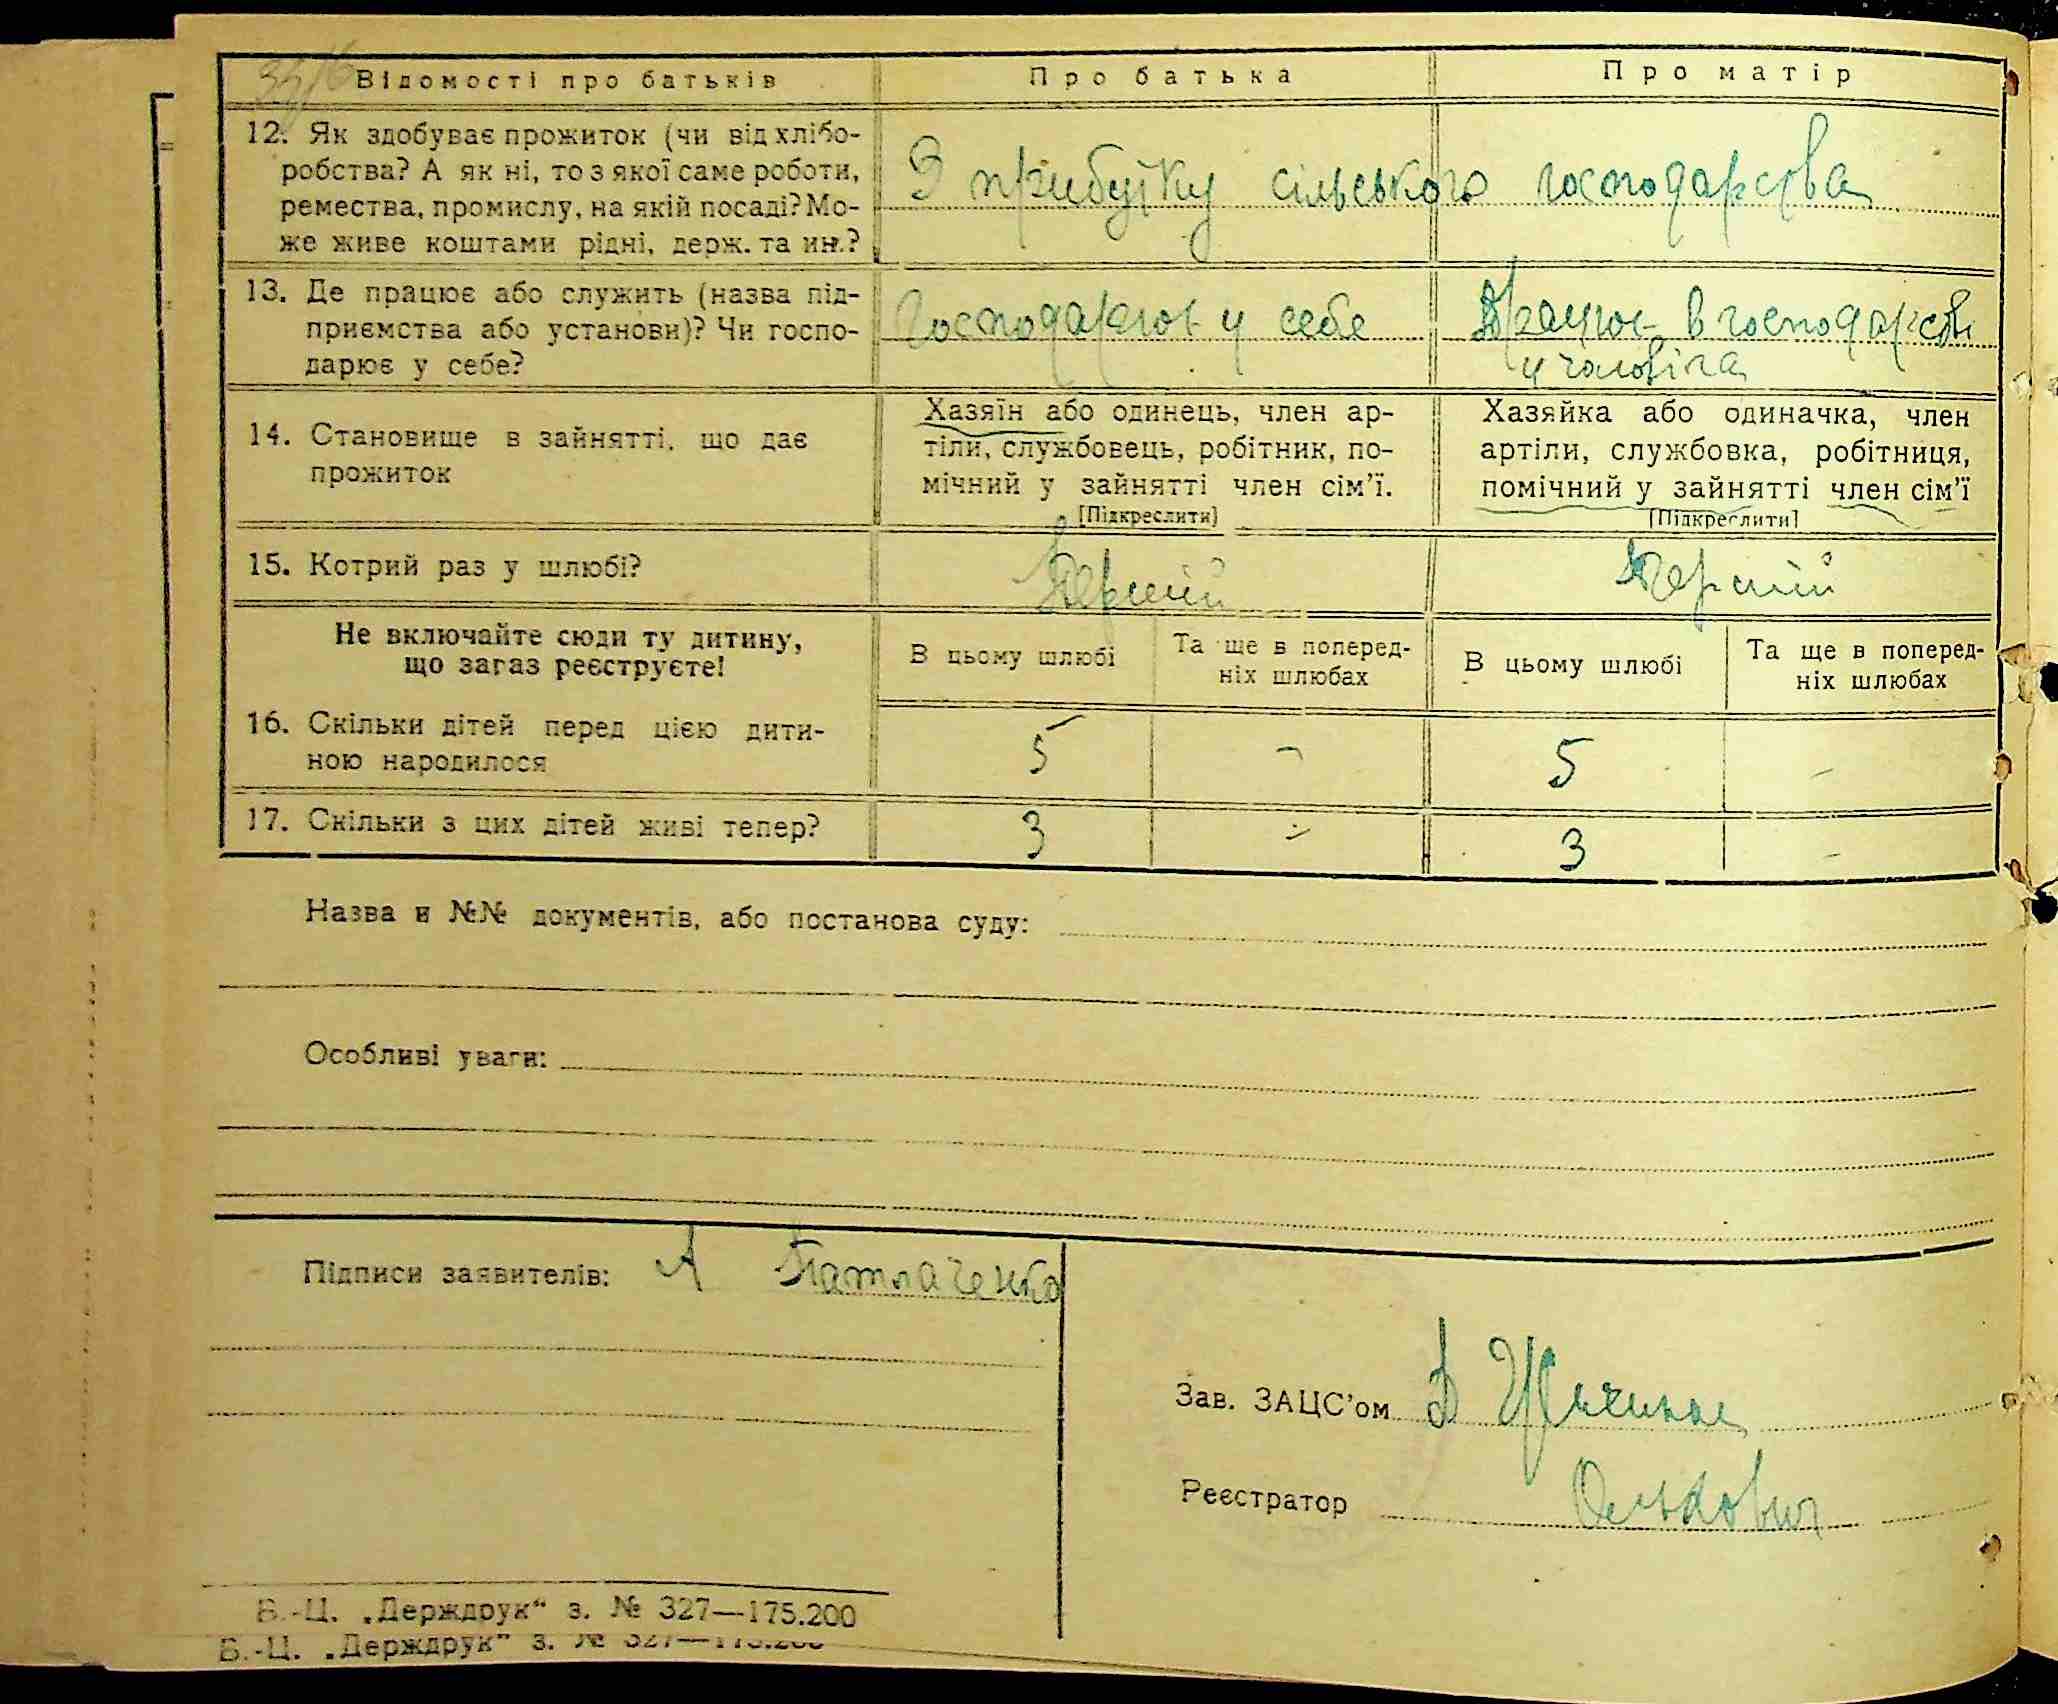 Відомості про батьків Про батька Про матір
12. Як здобуває прожиток (чи від хлібо-
робства? А як ні, то з якої саме роботи,
ремества, промислу, на якій посаді? Мо-
же живе коштами рідні, держ. та ин.?
З прибутку сільського господарства
13. Де працює або служить (назва під-
приємства або установи)? Чи госпо-
дарює у себе?
Господарює у себе
Працює в господарстві
у чоловіка
14. Становище в зайнятті, що дає
прожиток
Хазяїн або одинець, член ар-
тіли, службовець, робітник, по-
мічний у зайнятті член сім'ї.
[Підкреслити]
Хазяйка або одиначка, член
артіли, службовка, робітниця,
помічний у зайнятті член сім'ї
[Підкреслити]
15. Котрий раз у шлюбі? Перший Перший
Не включайте сюди ту дитину,
що зараз реєструєте!
В цьому шлюбі
Та ще в поперед-
ніх шлюбах
В цьому шлюбі
Та ще в поперед-
ніх шлюбах
16. Скільки дітей перед цією дити-
ною народилося
5 - 5 -
17. Скільки з цих дітей живі тепер? 3 - 3 -
Назва и №№ документів, або постанова суду:
Особливі уваги:
Підписи заявителів: А Патлаченко
Зав. ЗАЦС'ом
Реєстратор
В.-Ц. „Держдрук“ з. № 327—175.200
В.-Ц. „Держдрук“ з. № 327—175.200